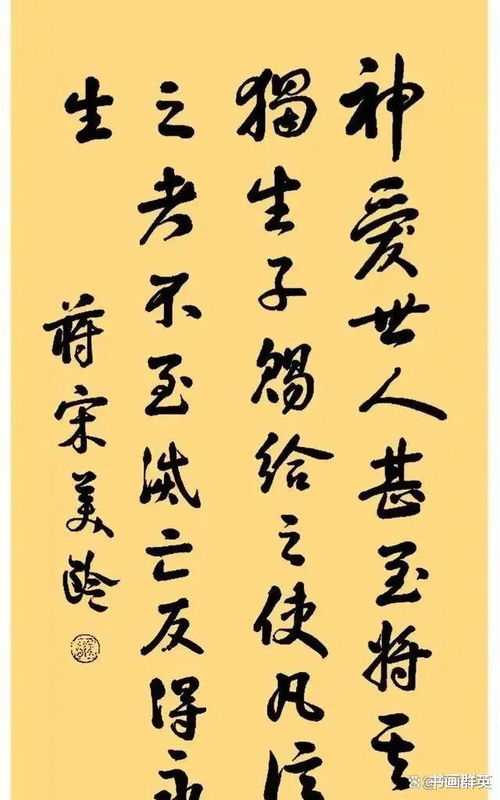 神愛世人甚至將其
獨生子賜給之使凡信
之者不至滅亡反得永
生
蔣宋美齡
@书画群英